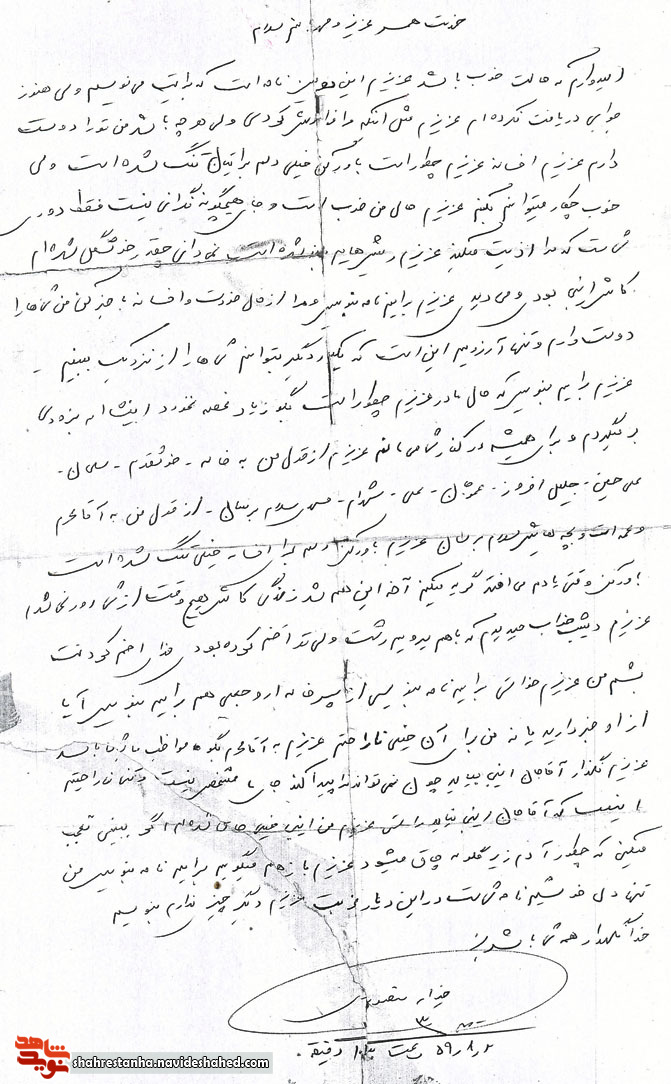 خدمت همسر عزیز و مهربانم سلام
امیدوارم که حالت خوب باشد عزیزم این دومین نامه است که برایت می نویسم ولی هنوز
جوابی دریافت نکرده ام عزیزم مثل اینکه مرا فراموش کردی ولی هر چه باشد من تو را دوست
دارم عزیزم افسانه عزیزم چطور است باور کن خیلی دلم برایتان تنگ شده است ولی
خوب چکار میتوانم بکنم عزیزم حال من خوب است و جای هیچگونه نگرانی نیست فقط دوری
شماست که مرا اذیت میکند عزیزم ریشهایم بلند شده است نمیدانی چقدر خوشگل شده ام
کاش اینجا بودی و می دیدی عزیزم برایم نامه بنویس و مرا از حال خودت و افسانه با خبر کن من شما را
دوست دارم و تنها آرزویم این است که یکبار دیگر بتوانم شما را از نزدیک ببینم -
عزیزم برایم بنویس که حال مادر عزیزم چطور است بگو زیاد غصه نخورد انشاءاله بزودی
بر میگردم و برای همیشه در کنارش می مانم عزیزم از قول من به خاله - خوشقدم - سلمان -
علی حسین - جلیل افروز - عموجان - علی - شهرام - سلام برسان - از قول من به آقا محرم
و بچه هایش سلام برسان عزیزم باور کن دلم برای افسانه خیلی تنگ شده است
باور کن وقتی یادم می افتد گریه میکنم آخه این هم شد زندگی کاش هیچوقت از شما دور نمی شدم
عزیزم دیشب خواب میدیدم که با هم بودیم ولی تو اخم کرده بودی فدای اخم کردنت
بشم من عزیزم خواستی برایم نامه بنویسی از پسرخاله ام رجبعلی هم برایم بنویس آیا
از او خبر دارید یا نه من برای آن خیلی ناراحتم عزیزم به آقا محرم بگو مواظب باشد
عزیزم نگذار آقاجان اینجا بیاید چون نمی تواند مرا پیدا کند جای ما مشخص نیست
که آقاجان اینجا نیاید راستی عزیزم من اینجا خیلی چاق شده ام اگر ببینی تعجب
میکنی که چطور آدم زیر گلوله چاق میشود عزیزم باز هم میگویم برایم نامه بنویس من
تنها دل خوشیم نامه شماست در این دیار غربت عزیزم دیگر چیزی ندارم بنویسم
خدا نگهدار همه شما باشد
۵۹/۸/۲ ساعت ۱۰ دقیقه
شاهد
نوید
shahrestanha.navideshahed.com